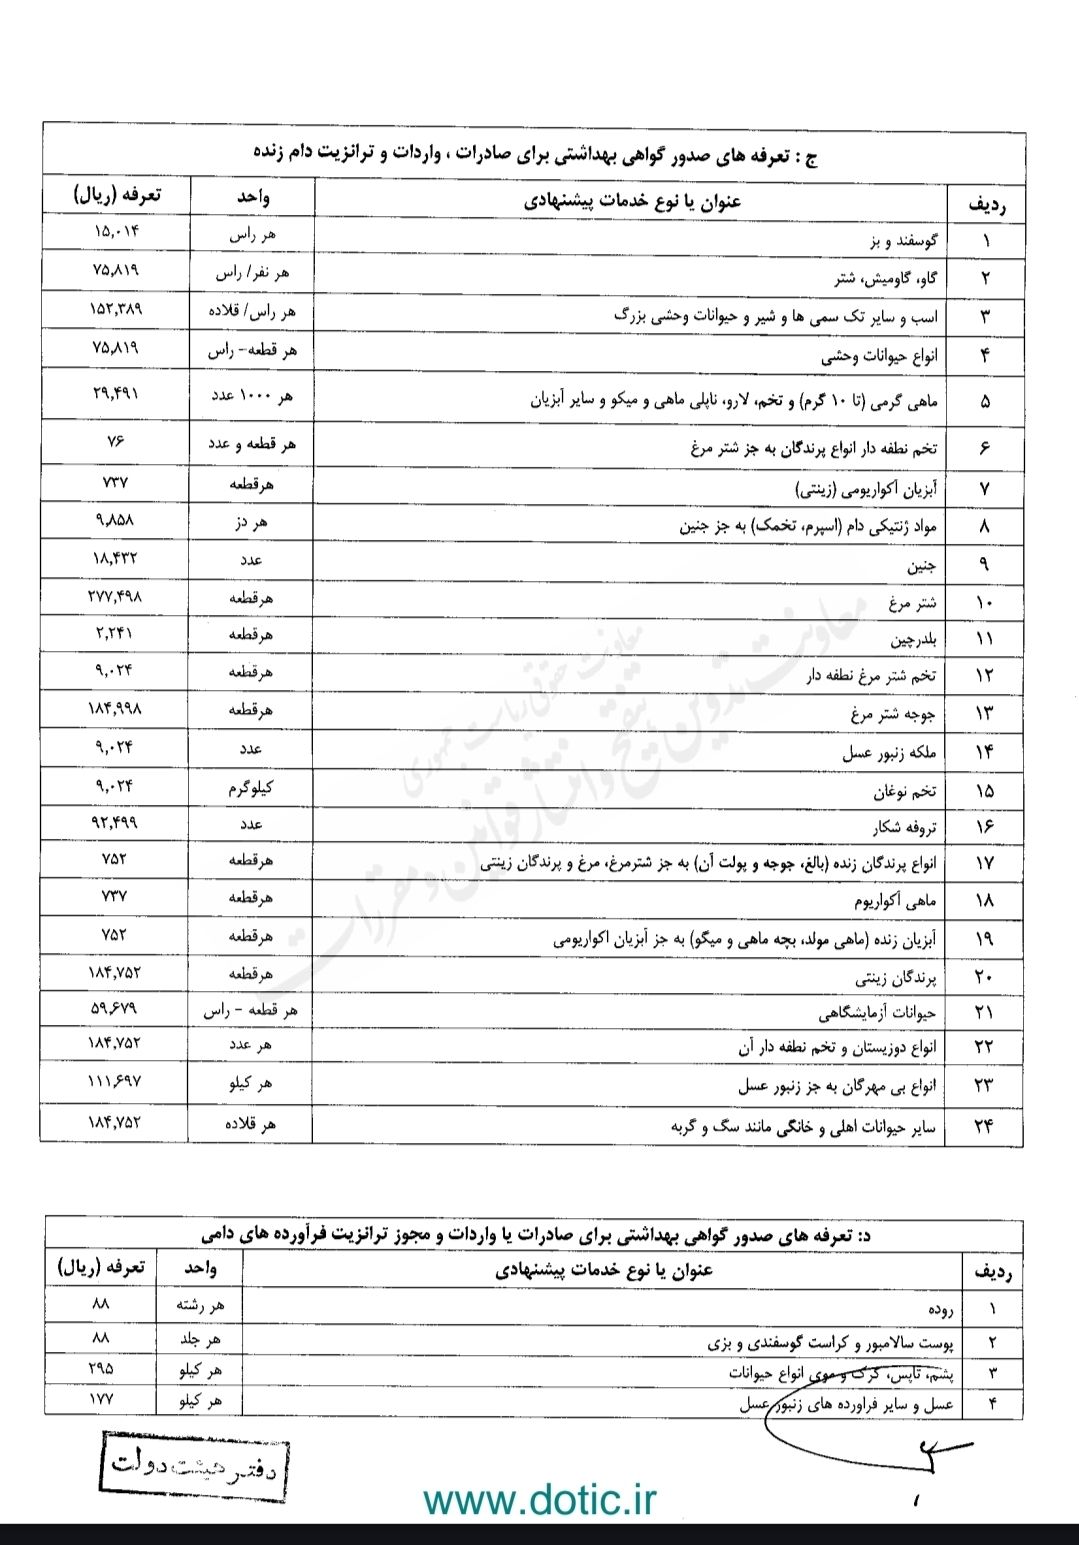 ج : تعرفه های صدور گواهی بهداشتی برای صادرات ، واردات و ترانزیت دام زنده
ردیف عنوان یا نوع خدمات پیشنهادی واحد تعرفه (ریال)
۱ گوسفند و بز هر راس ۱۵,۰۱۴
۲ گاو، گاومیش، شتر هر نفر/ راس ۷۵,۸۱۹
۳ اسب و سایر تک سمی ها و شیر و حیوانات وحشی بزرگ هر راس/ قلاده ۱۵۲,۳۸۹
۴ انواع حیوانات وحشی هر قطعه- راس ۷۵,۸۱۹
۵ ماهی گرمی (تا ۱۰ گرم) و تخم، لارو، ناپلی ماهی و میکو و سایر آبزیان هر ۱۰۰۰ عدد ۲۹,۴۹۱
۶ تخم نطفه دار انواع پرندگان به جز شتر مرغ هر قطعه و عدد ۷۶
۷ آبزیان آکواریومی (زینتی) هرقطعه ۷۳۷
۸ مواد ژنتیکی دام (اسپرم، تخمک) به جز جنین هر دز ۹,۸۵۸
۹ جنین عدد ۱۸,۴۳۲
۱۰ شتر مرغ هرقطعه ۲۷۷,۴۹۸
۱۱ بلدرچین هرقطعه ۲,۲۴۱
۱۲ تخم شتر مرغ نطفه دار هرقطعه ۹,۰۲۴
۱۳ جوجه شتر مرغ هرقطعه ۱۸۴,۹۹۸
۱۴ ملکه زنبور عسل عدد ۹,۰۲۴
۱۵ تخم نوغان کیلوگرم ۹,۰۲۴
۱۶ تروفه شکار عدد ۹۲,۴۹۹
۱۷ انواع پرندگان زنده (بالغ، جوجه و پولت آن) به جز شترمرغ، مرغ و پرندگان زینتی هرقطعه ۷۵۲
۱۸ ماهی آکواریوم هرقطعه ۷۳۷
۱۹ آبزیان زنده (ماهی مولد، بچه ماهی و میگو) به جز آبزیان اکواریومی هرقطعه ۷۵۲
۲۰ پرندگان زینتی هرقطعه ۱۸۴,۷۵۲
۲۱ حیوانات آزمایشگاهی هر قطعه - راس ۵۹,۶۷۹
۲۲ انواع دوزیستان و تخم نطفه دار آن هر عدد ۱۸۴,۷۵۲
۲۳ انواع بی مهرگان به جز زنبور عسل هر کیلو ۱۱۱,۶۹۷
۲۴ سایر حیوانات اهلی و خانگی مانند سگ و گربه هر قلاده ۱۸۴,۷۵۲
معاونت حقوقی ریاست جمهوری
معاونت تدوین، تنقیح و انتشار قوانین و مقررات
د: تعرفه های صدور گواهی بهداشتی برای صادرات یا واردات و مجوز ترانزیت فرآورده های دامی
ردیف عنوان یا نوع خدمات پیشنهادی واحد تعرفه (ریال)
۱ روده هر رشته ۸۸
۲ پوست سالامبور و کراست گوسفندی و بزی هر جلد ۸۸
۳ پشم، تاپس، کرک و موی انواع حیوانات هر کیلو ۲۹۵
۴ عسل و سایر فراورده های زنبور عسل هر کیلو ۱۷۷
دفتر هیئت دولت
www.dotic.ir